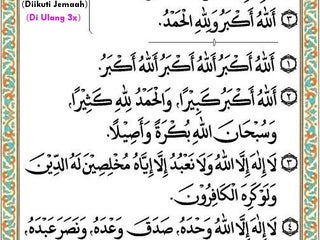 (Diikuti Jemaah)
(Di Ulang 3x)
٣ اَللهُ أَكْبَرُ وَلِلّٰهِ الْحَمْدُ.
١ اَللهُ أَكْبَرُ اَللهُ أَكْبَرُ اَللهُ أَكْبَرُ
٢ اَللهُ أَكْبَرُ كَبِيْرًا، وَالْحَمْدُ لِلّٰهِ كَثِيْرًا،
وَسُبْحَانَ اللهِ بُكْرَةً وَأَصِيْلًا.
٣ لَا إِلٰهَ إِلَّا اللهُ وَلَا نَعْبُدُ إِلَّا إِيَّاهُ مُخْلِصِيْنَ لَهُ الدِّيْنَ
وَلَوْ كَرِهَ الْكَافِرُوْنَ.
٤ لَا إِلٰهَ إِلَّا اللهُ وَحْدَهُ، صَدَقَ وَعْدَهُ، وَنَصَرَ عَبْدَهُ،